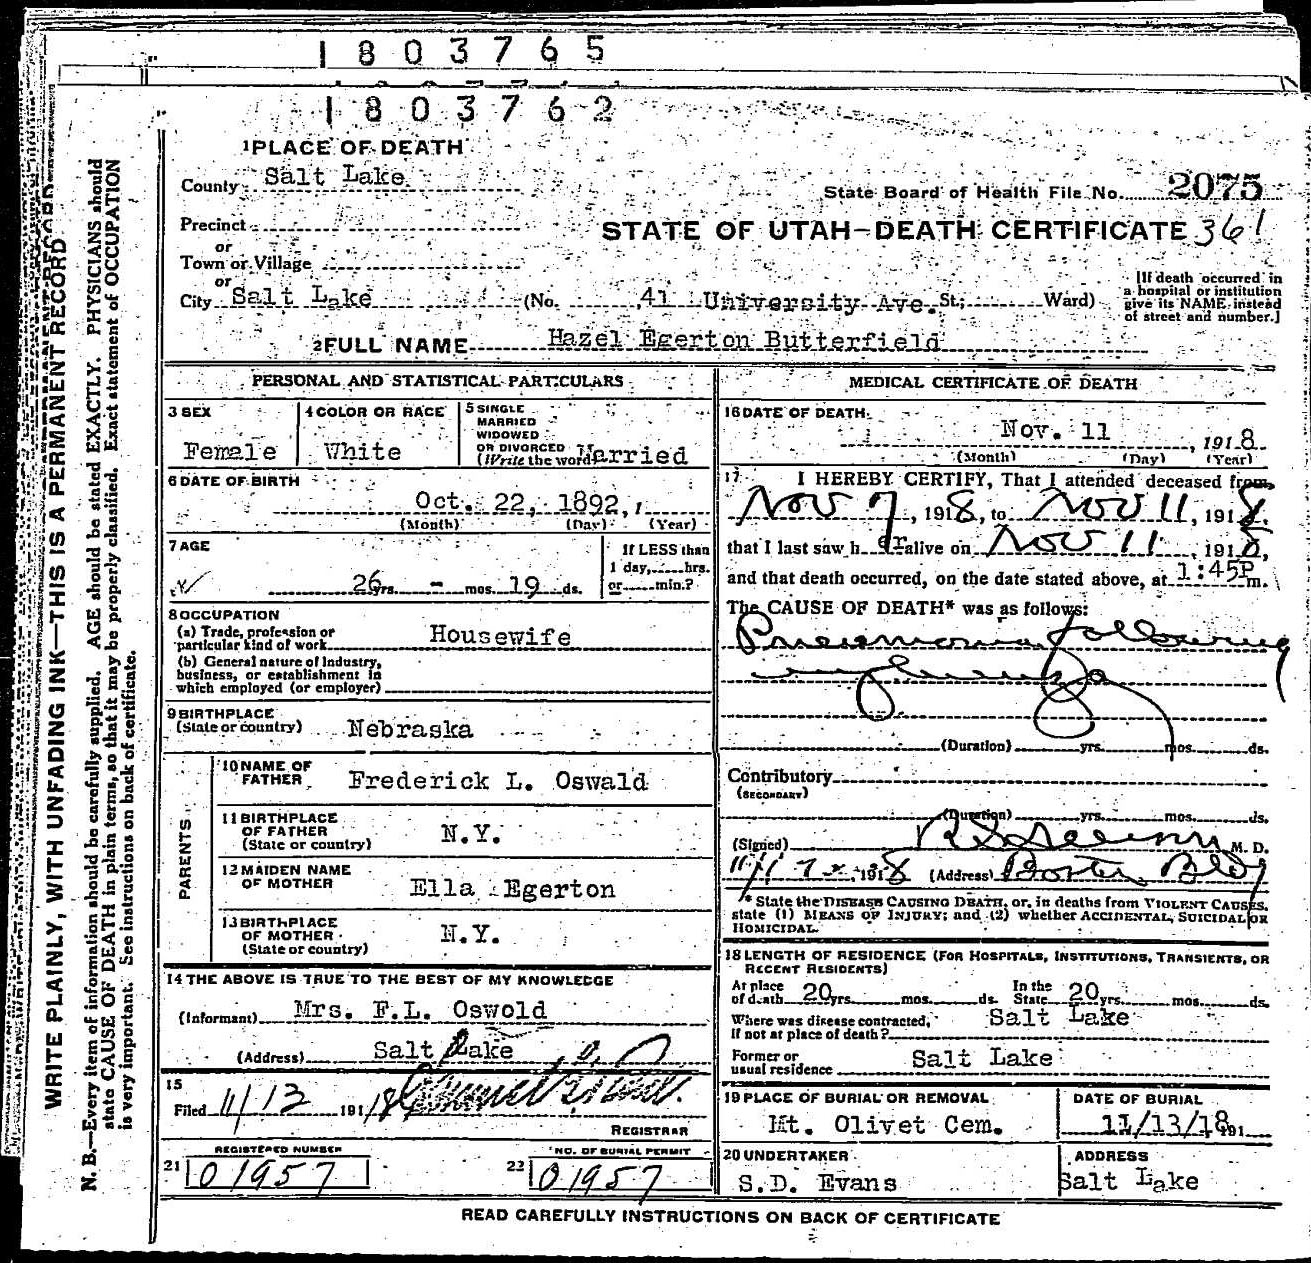 1803765
1803762
WRITE PLAINLY, WITH UNFADING INK—THIS IS A PERMANENT RECORD
N. B.—Every item of information should be carefully supplied. AGE should be stated EXACTLY. PHYSICIANS should
state CAUSE OF DEATH in plain terms, so that it may be properly classified. Exact statement of OCCUPATION
is very important. See instructions on back of certificate.
1 PLACE OF DEATH
County Salt Lake
State Board of Health File No. 2075
Precinct
STATE OF UTAH—DEATH CERTIFICATE 361
or
Town or Village
or
City Salt Lake (No. 41 University Ave. St.; Ward)
[If death occurred in
a hospital or institution
give its NAME instead
of street and number.]
2 FULL NAME Hazel Egerton Butterfield
PERSONAL AND STATISTICAL PARTICULARS
3 SEX
Female
4 COLOR OR RACE
White
5 SINGLE
MARRIED
WIDOWED
OR DIVORCED
(Write the word) Married
6 DATE OF BIRTH
Oct. 22, 1892,
(Month) (Day) (Year)
7 AGE
26 yrs. - mos. 19 ds.
If LESS than
1 day, hrs.
or min.?
8 OCCUPATION
(a) Trade, profession or
particular kind of work Housewife
(b) General nature of Industry,
business, or establishment in
which employed (or employer)
9 BIRTHPLACE
(State or country) Nebraska
PARENTS
10 NAME OF
FATHER Frederick L. Oswald
11 BIRTHPLACE
OF FATHER
(State or country) N.Y.
12 MAIDEN NAME
OF MOTHER Ella Egerton
13 BIRTHPLACE
OF MOTHER
(State or country) N.Y.
14 THE ABOVE IS TRUE TO THE BEST OF MY KNOWLEDGE
(Informant) Mrs. F.L. Oswold
(Address) Salt Lake
15
Filed 11/13 1918
REGISTRAR
REGISTERED NUMBER
21 01957
NO. OF BURIAL PERMIT
22 01957
MEDICAL CERTIFICATE OF DEATH
16 DATE OF DEATH
Nov. 11, 1918
(Month) (Day) (Year)
17 I HEREBY CERTIFY, That I attended deceased from
Nov 7, 1918, to Nov 11, 1918.
that I last saw her alive on Nov 11, 1918,
and that death occurred, on the date stated above, at 1:45P m.
The CAUSE OF DEATH* was as follows:
Pneumonia following
influenza
(Duration) yrs. mos. ds.
Contributory
(SECONDARY)
(Duration) yrs. mos. ds.
(Signed) M. D.
1918 (Address) Boston Bldg
* State the DISEASE CAUSING DEATH, or, in deaths from VIOLENT CAUSES,
state (1) MEANS OF INJURY; and (2) whether ACCIDENTAL, SUICIDAL OR
HOMICIDAL.
18 LENGTH OF RESIDENCE (FOR HOSPITALS, INSTITUTIONS, TRANSIENTS, OR
RECENT RESIDENTS)
At place
of death 20 yrs. mos. ds.
In the
State 20 yrs. mos. ds.
Where was disease contracted,
if not at place of death? Salt Lake
Former or
usual residence Salt Lake
19 PLACE OF BURIAL OR REMOVAL
Mt. Olivet Cem.
DATE OF BURIAL
11/13/18 191
20 UNDERTAKER
S.D. Evans
ADDRESS
Salt Lake
READ CAREFULLY INSTRUCTIONS ON BACK OF CERTIFICATE